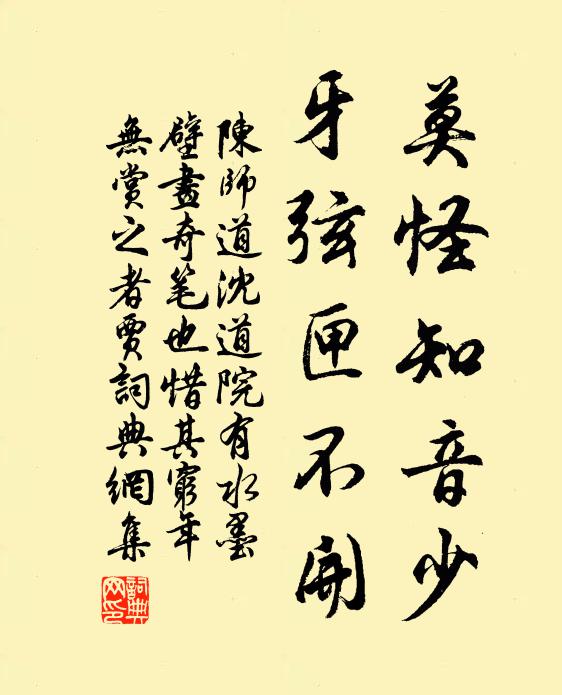 莫怪知音少
牙弦匣不開
陳師道沈道院有水墨
壁畫奇笔也惜其窮年
無賞之者賈詞典網集
詞典网印